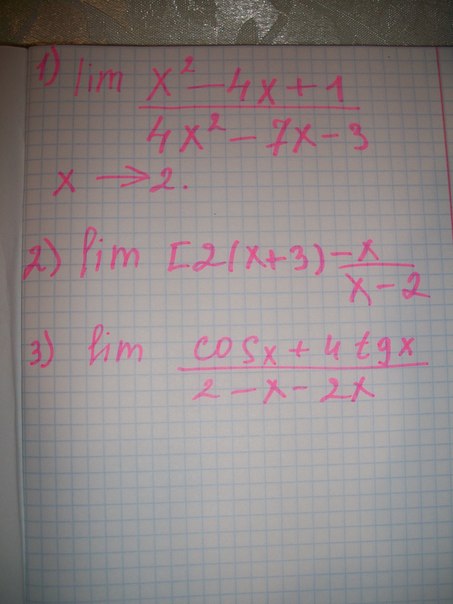 1) lim x² - 4x + 1
4x² - 7x - 3
x → 2.
2) lim [2(x+3) - x
x - 2
3) lim cosx + 4 tgx
2 - x - 2x